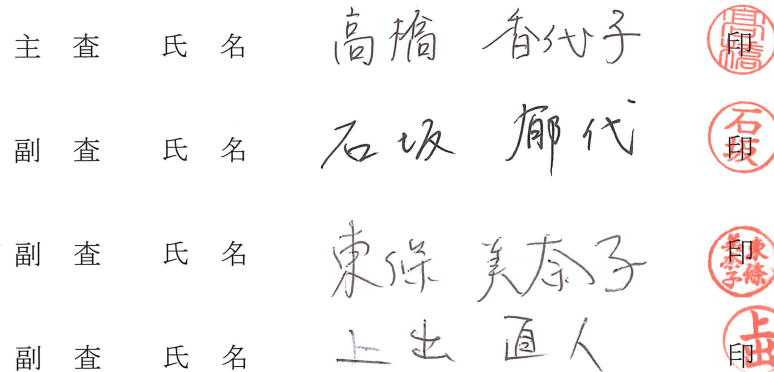 主査 氏名 高橋 香代子 印 高橋
副査 氏名 石坂 郁代 印 石坂
副査 氏名 東條 美奈子 印 東條美奈子
副査 氏名 上出 直人 印 上出